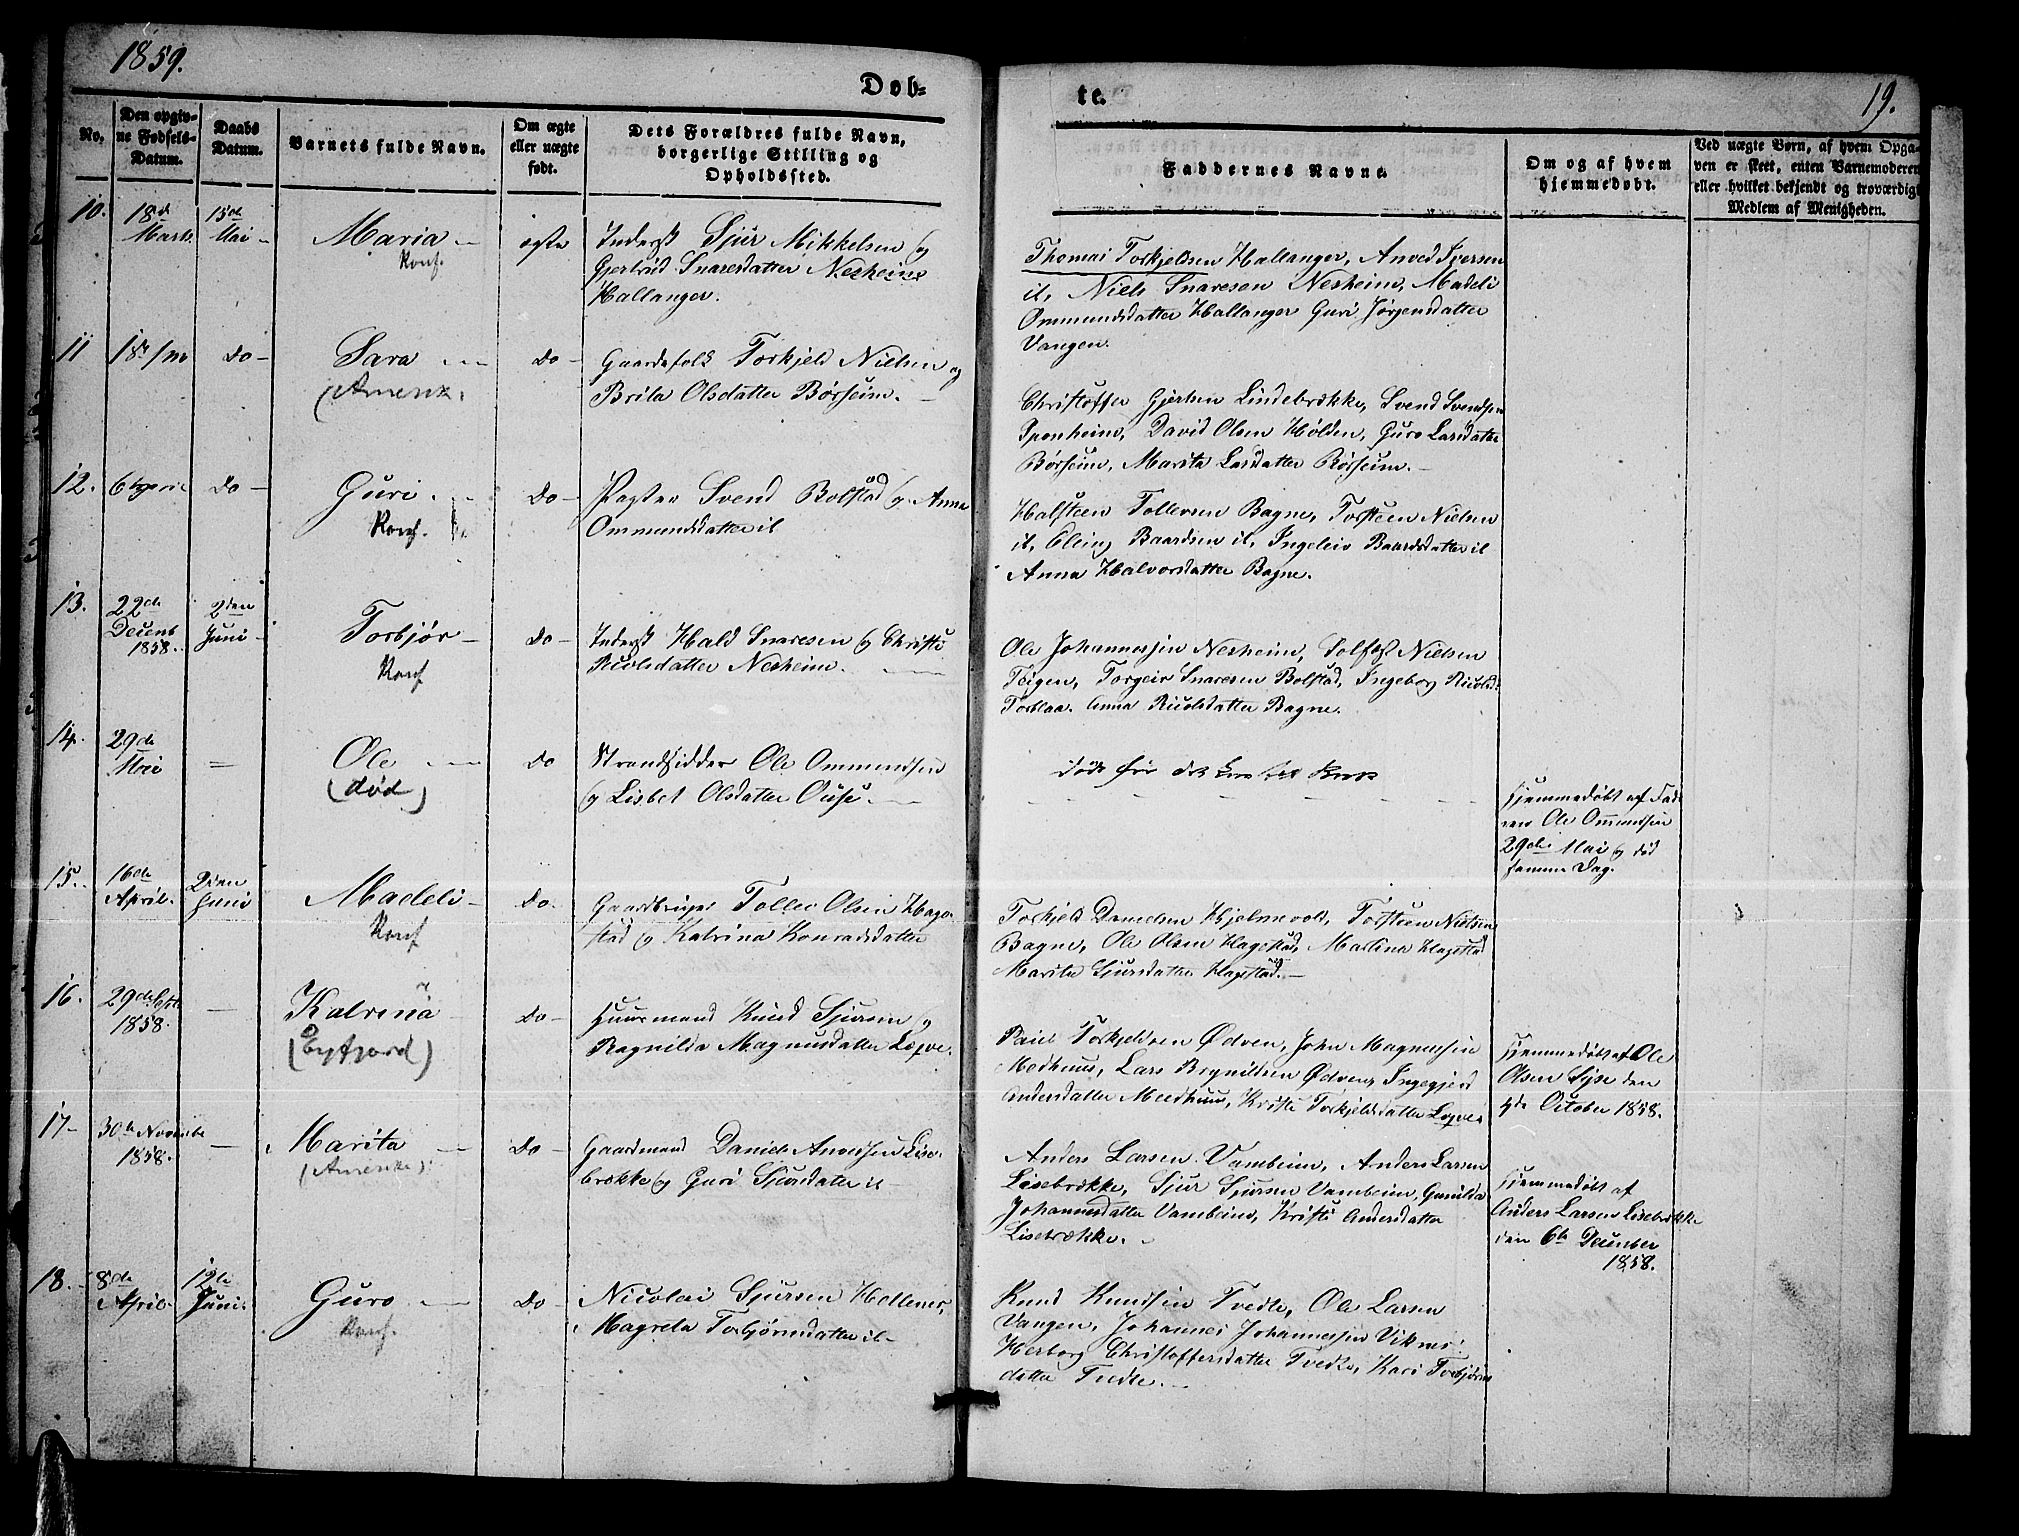 1859.
Døb-
te.
19.
No.
Den opgiv-
ne Fødsels-
Datum.
Daabs
Datum.
Barnets fulde Navn.
Om ægte
eller uægte
født.
Dets Forældres fulde Navn,
borgerlige Stilling og
Opholdssted.
Faddernes Navne.
Om og af hvem
hjemmedøbt.
Ved uægte Børn, af hvem Opga-
ven er skeet, enten Barnemoderen
eller hvilket bekjendt og troværdigt
Medlem af Menigheden.
10.
18de
Marts
15de
Mai
Maria
Konf.
ægte
Inderst Sjur Mikkelsen og
Gjertrud Snaresdatter Nesheim
Hallanger.
Thomas Torkjeldsen Hallanger, Anved Iversen
it, Niels Snaresen Nesheim, Madeli
Ommundsdatter Hallanger Guri Jørgensdatter
Vangen.
11
18
Do
Sara
(Amerik.
Do
Gaardsfolk Torkjeld Nielsen og
Brita Olsdatter Børseim.
Christoffer Gjertsen Lindebrække, Svend Svendsen
Sponheim, David Olsen Hølden, Guro Larsdatter
Børseim, Marita Larsdatter Børseim.
12.
6te
Do
Guri
Konf.
Do
Pogter Svend Bolstad og Anna
Ommundsdatter it
Halsteen Tollevsen Bagne, Torsteen Nielsen
it, Elling Baardsen it, Ingeleiv Baardsdatter it
Anna Halvorsdatter Bagne.
13.
22de
Decemb
1858.
2den
Juni
Torbjør
Konf
Do
Inderst Hald Snaresen og Christi
Ricolsdatter Nesheim.
Ole Johannessen Nesheim, Solfest Nielsen
Teigen, Torgeir Snaresen Bolstad, Ingeborg Ricolsd:
Torblaa. Anna Ricolsdatter Bagne.
14.
29de
Mai
Ole
(død)
Do
Strandsidder Ole Ommundsen
og Lisbet Olsdatter Ouse.
døde før det kom til Kirke
Hjemmedøbt af Fad
ren Ole Ommundsen
29de Mai og død
samme Dag.
15.
16de
April.
2den
Juni
Madeli
Konf
Do.
Gaardbruger Tollev Olsen Hage-
stad og Katrina Konradsdatter
Torkjeld Danielsen Hjelmevold, Torsteen Nielsen
Bagne, Ole Olsen Hagestad, Martina Hagestad
Marita Sjursdatter Hagestad.
16.
29de Septb
1858.
Katrina
(Eyfjord)
Do
Huusmand Knud Sjursen og
Ragnilda Magnusdatter Lægve.
Paul Torkjeldsen Ødven, John Magnussen
Medhuus, Lars Brynildsen Ødven, Ingegjerd
Andersdatter Meedhuus, Kristi Torkjeldsdatter Legve
Hjemmedøbt af Ole
Olsen Sysе den
4de October 1858.
17
30te Novembe
1858.
Marita
(Amerika)
Do
Gaardmand Daniel Amundsen Lise-
brække og Guri Sjursdatter it
Anders Larsen Vambeim, Anders Larsen
Lisebrække, Sjur Sjursen Vambeim, Gunilda
Johannesdatter Vambeim, Kristi Andersdatter
Lisebrække.
Hjemmedøbt af
Anders Larsen Lisebrække
den 6te December
1858.
18.
8de
April.
12te
Juni.
Guro
Konf.
Do
Nicolai Sjursen Hollener,
Magreta Torbjørnsdatter it
Knud Knudsen Tvedte, Ole Larsen
Vangen, Johannes Johannessen Viknes
Herborg Christoffersdatter Tvedte, Kari Torbjørns
datter Tvedte.